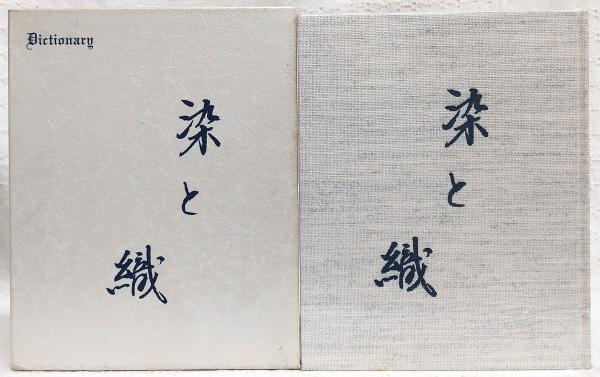 Dictionary
染と織
染と織